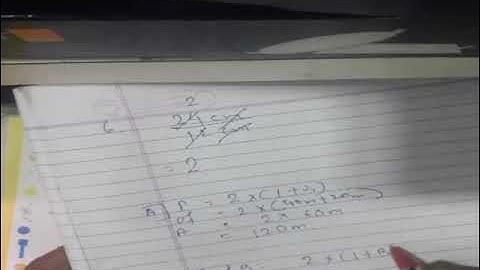 2
6 24 cm
12 cm
= 2
P = 2 × (l + b)
of = 2 × (40m + 20m)
A = 2 × 60m
= 120m
2 × (l + B